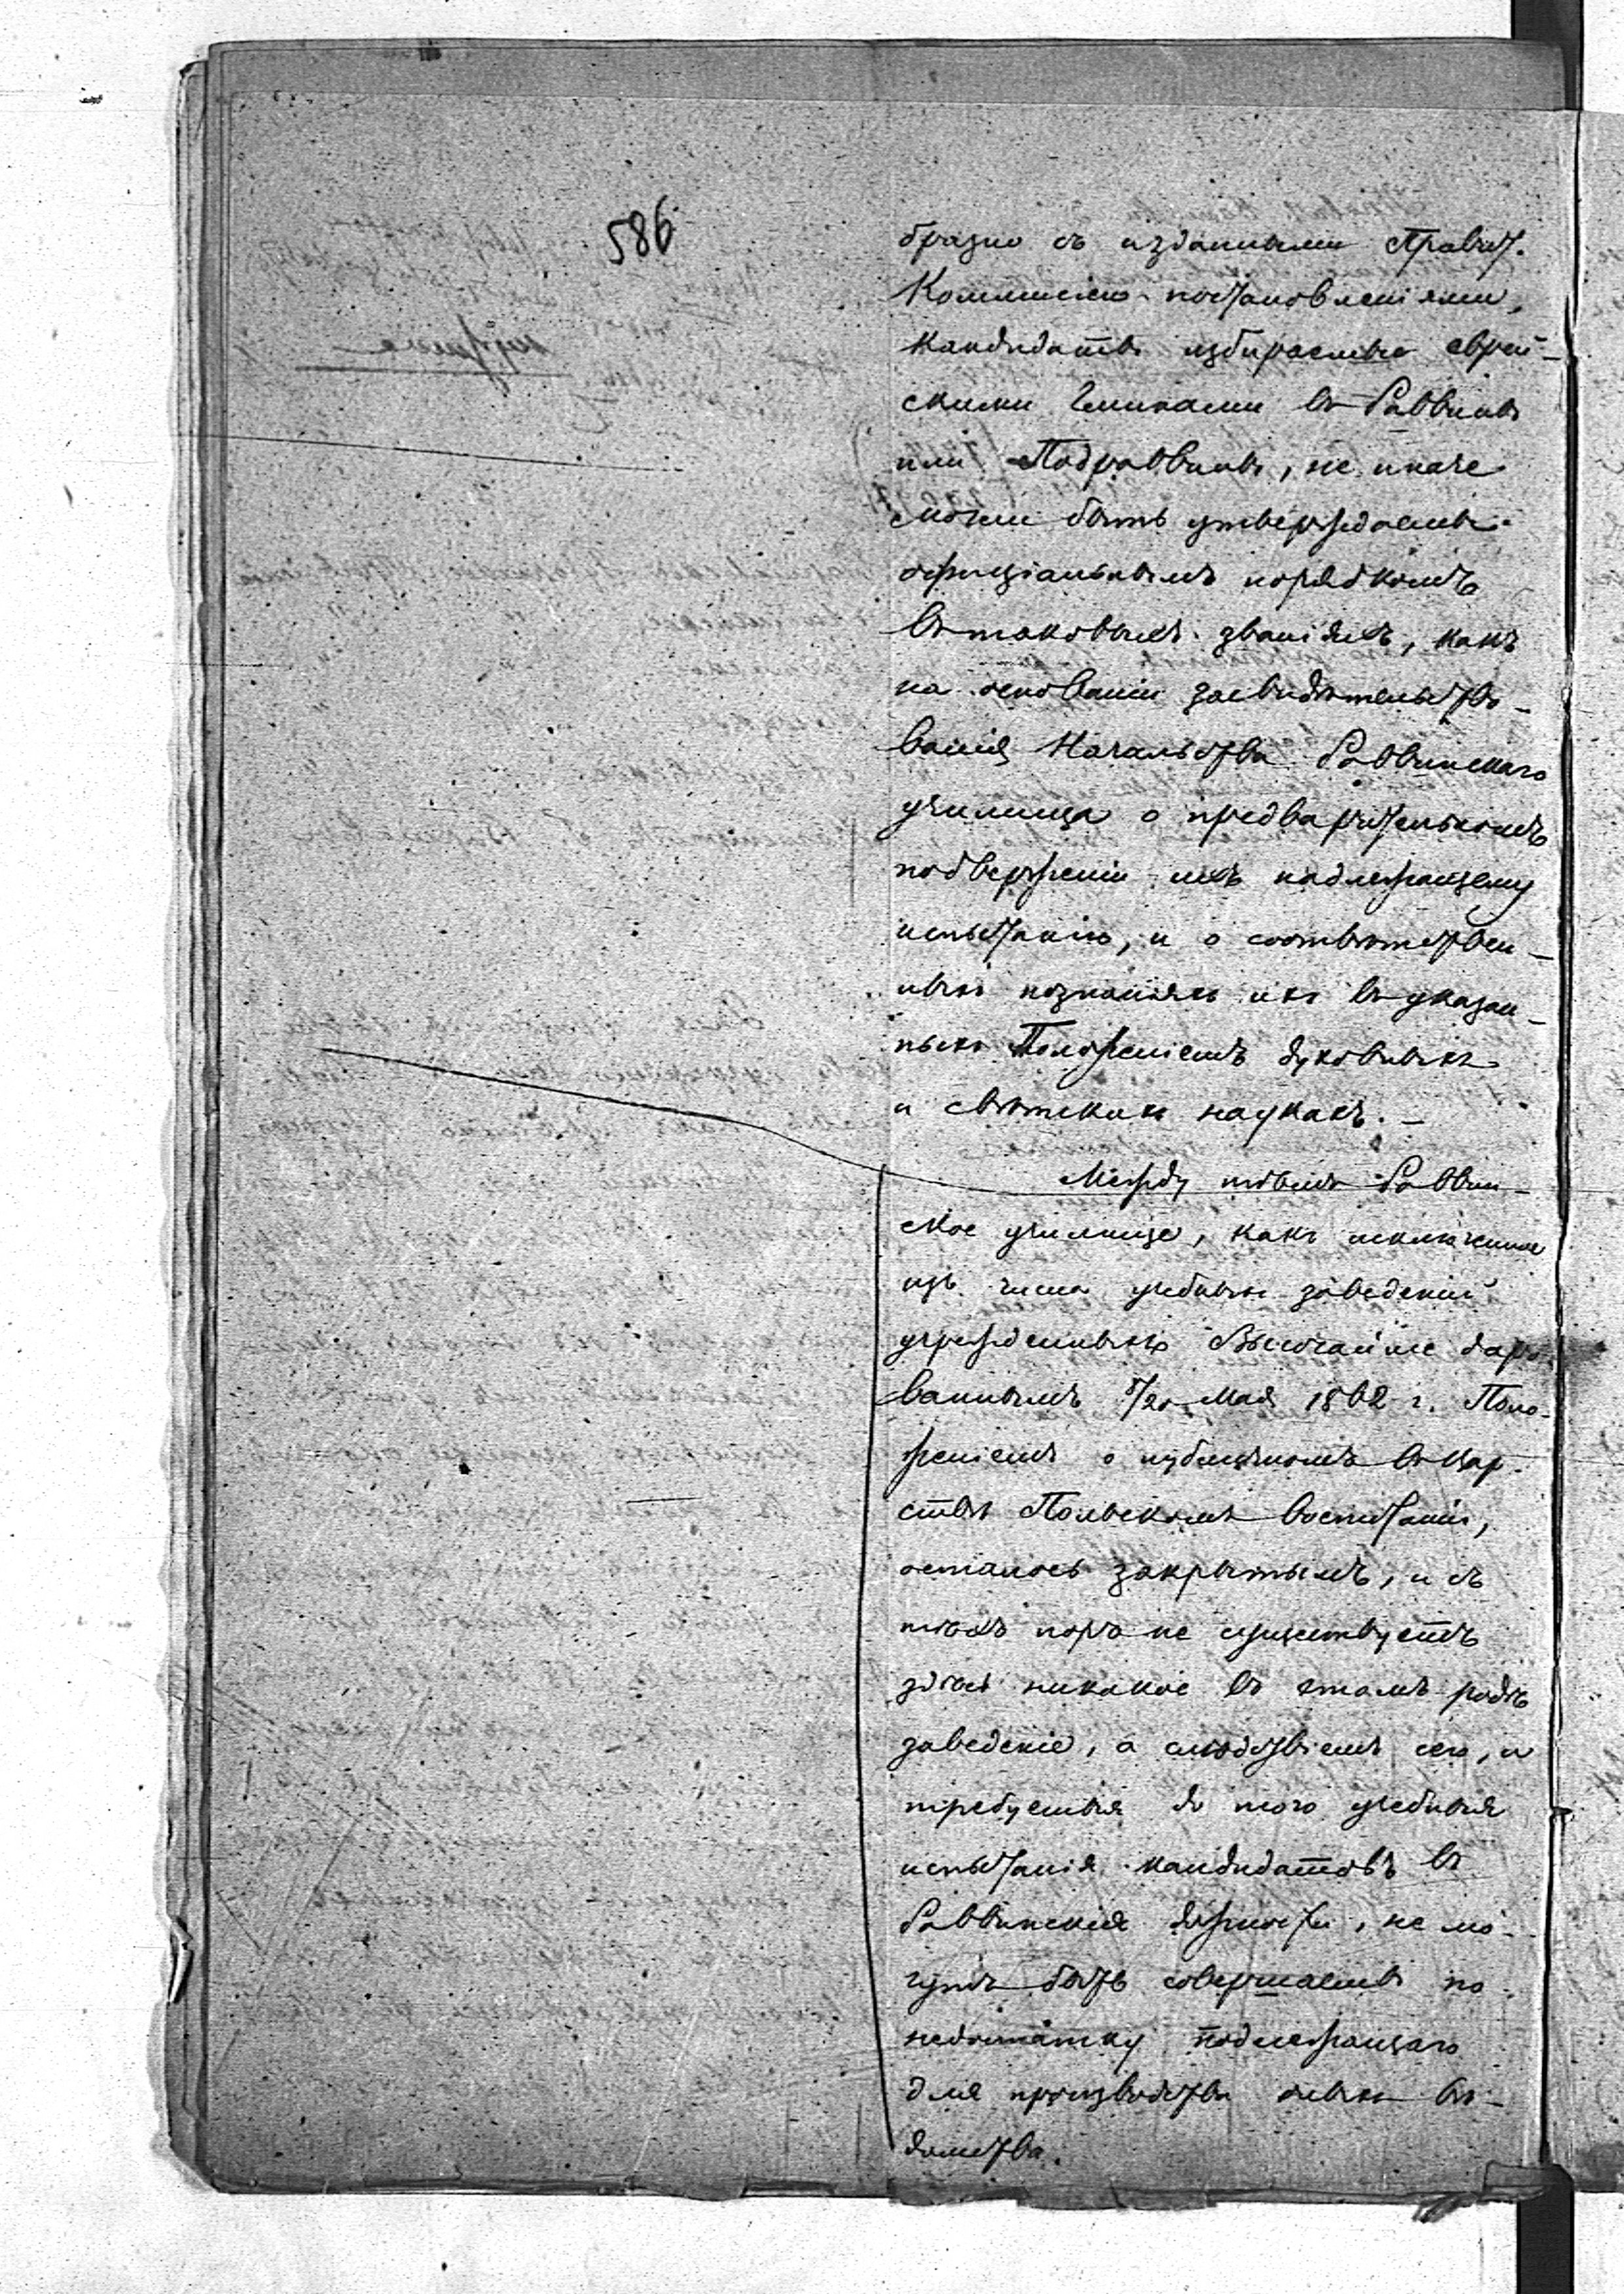 586
бразно съ изданными Правит.
Коммисіею постановленіями,
кандидаты избираемые еврей-
скими Гминами въ Раввины
или Подраввины, не иначе
могли быть утверждаемы
офиціальнымъ порядкомъ
въ таковыхъ званіяхъ, какъ
на основаніи засвидѣтельство-
ванія Начальства Раввинскаго
училища о предварительномъ
подверженіи ихъ надлежащему
испытанію, и о соотвѣтствен-
ныхъ познаніяхъ ихъ въ указан-
ныхъ Положеніемъ духовныхъ
и свѣтскихъ наукахъ. —
Между тѣмъ Раввин-
ское училище, какъ исключенное
изъ числа учебныхъ заведеній
учрежденныхъ Высочайше даро-
ваннымъ 8/20 Мая 1862 г. Поло-
женіемъ о публичномъ въ Цар-
ствѣ Польскомъ воспитаніи,
осталось закрытымъ, и съ
тѣхъ поръ не существуетъ
здѣсь никакое въ этомъ родѣ
заведеніе, а слѣдствіемъ сего, и
требуемыя до того учебныя
испытанія кандидатовъ въ
Раввинскія должности, не мо-
гутъ быть совершаемы по
недостатку подлежащаго
для производства оныхъ вѣ-
домства.